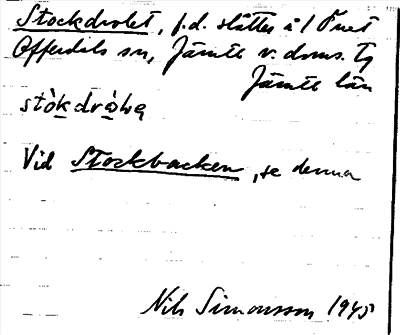 Stockdrolet, f.d. slåtter å / Önet
Offerdals sn, Jämtl v. doms. Tg
Jämtl län
stòk drò̱lẹ
Vid Stockbacken, se denna
Nils Simonsson 1945